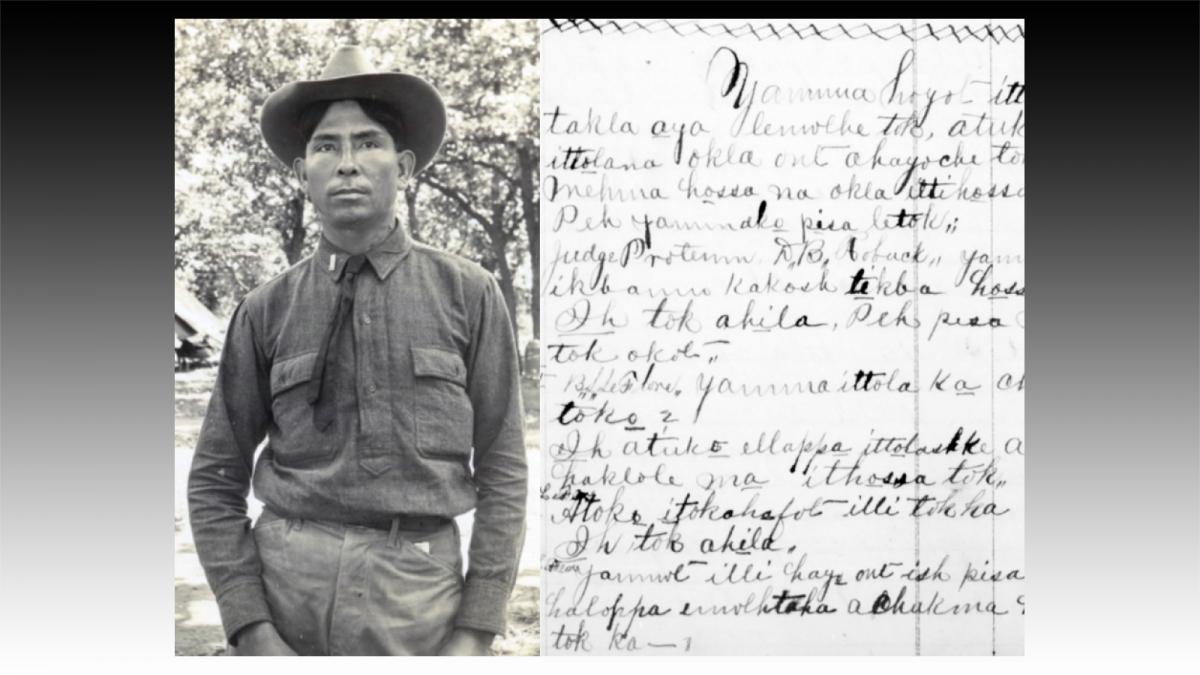 Yammua hoyot itt
takla aya lenwlhe tok, atuk
ittolana okla ont ahayoche tok
Mehma hossa na okla ittihossa
Peh yammako pisa letok,,
Judge Protemn D,B, yam
ikbanno kakosh tikba hoss
Ih tok ahila, Peh pesa
tok okot,,
B,, LeFlore,, Yamma ittola ka ch
toko 2
Ih atuko ellappa ittolashke a
haklole ma ithossa tok,,
Atoko itokahafot illi tok ha
Ih tok ahila,
yammot illi haya ont ish pisa
haloppa emolhtaha a chakma
tok ka — 1